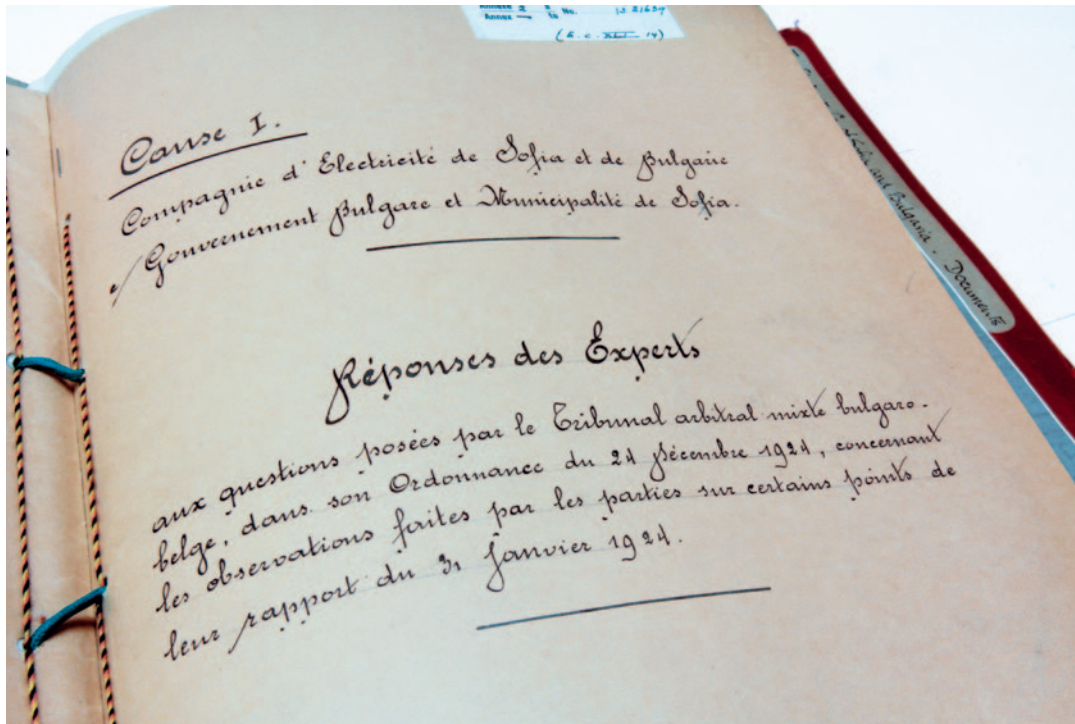 Annexe 2 a
Annex — to No. 12 21657
(E. c. XLVI 14)
Cause I.
Compagnie d'Electricité de Sofia et de Bulgarie
c/ Gouvernement Bulgare et Municipalité de Sofia.
Réponses des Experts
aux questions posées par le Tribunal arbitral mixte bulgaro-
belge, dans son Ordonnance du 24 Décembre 1924, concernant
les observations faites par les parties sur certains points de
leur rapport du 31 Janvier 1924.
Sofia and Bulgaria. Documents